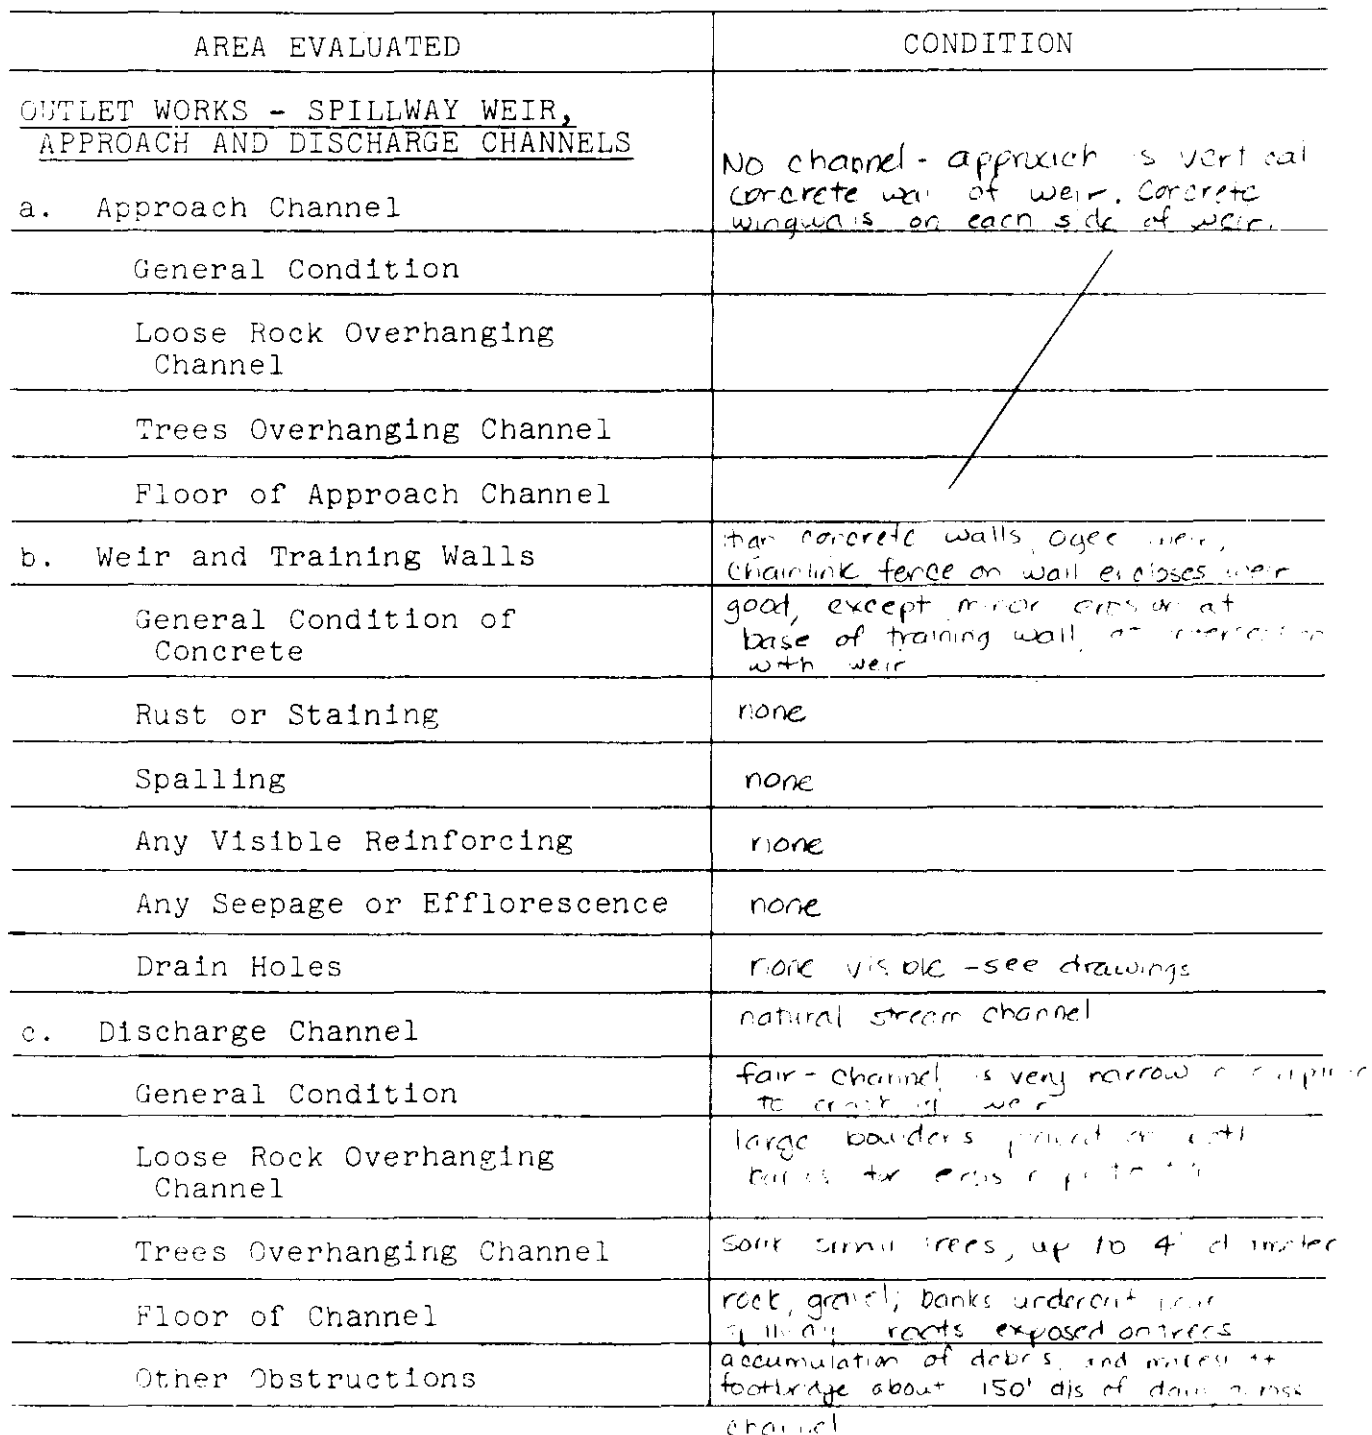 AREA EVALUATED
CONDITION
OUTLET WORKS - SPILLWAY WEIR,
APPROACH AND DISCHARGE CHANNELS
a. Approach Channel
No channel - approach is vertical
concrete wall of weir. Concrete
wingwalls on each side of weir.
General Condition
Loose Rock Overhanging
Channel
Trees Overhanging Channel
Floor of Approach Channel
b. Weir and Training Walls
concrete walls, ogee weir,
Chainlink fence on wall encloses weir
General Condition of
Concrete
good, except minor erosion at
base of training wall, at intersection
with weir
Rust or Staining
none
Spalling
none
Any Visible Reinforcing
none
Any Seepage or Efflorescence
none
Drain Holes
none visible - see drawings
c. Discharge Channel
natural stream channel
General Condition
fair - channel is very narrow
to crest of weir
Loose Rock Overhanging
Channel
large boulders on both
banks for erosion protection
Trees Overhanging Channel
some small trees, up to 4" diameter
Floor of Channel
rock, gravel; banks undercut near
spillway roots exposed on trees
Other Obstructions
accumulation of debris, and at
footbridge about 150' d/s of dam across
channel